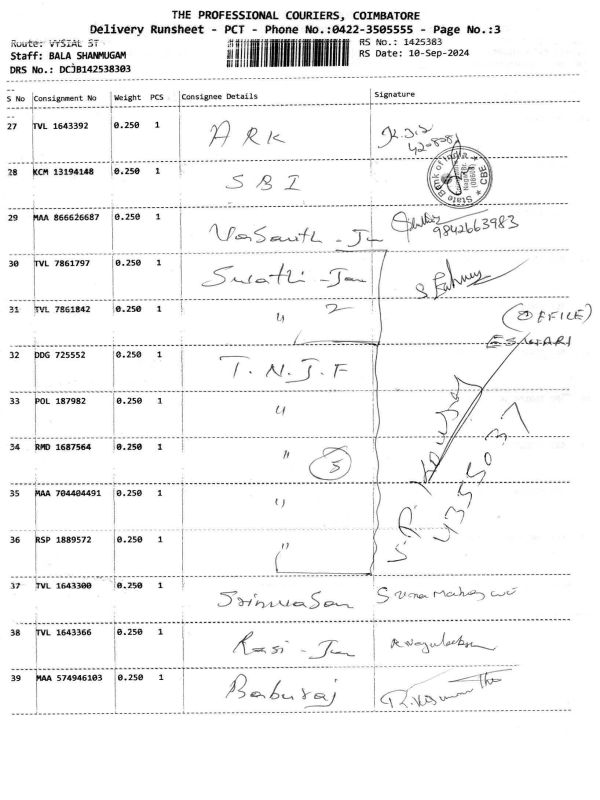 THE PROFESSIONAL COURIERS, COIMBATORE
Delivery Runsheet - PCT - Phone No.:0422-3505555 - Page No.:3
Route: VYSIAL ST
RS No.: 1425383
Staff: BALA SHANMUGAM
RS Date: 10-Sep-2024
DRS No.: DCJB142538303
S No Consignment No Weight PCS Consignee Details Signature
27 TVL 1643392 0.250 1 ARK
28 KCM 13194148 0.250 1 SBI State Bank of India CBE
29 MAA 866626687 0.250 1 Vasanth - Jn 9842663983
30 TVL 7861797 0.250 1 Swathi - Jn
31 TVL 7861842 0.250 1 " 2 (OFFICE)
32 DDG 725552 0.250 1 T.N.J.F ESWARI
33 POL 187982 0.250 1 "
34 RMD 1687564 0.250 1 " 5
35 MAA 704404491 0.250 1 "
36 RSP 1889572 0.250 1 "
4355037
37 TVL 1643300 0.250 1 Srinivasan
38 TVL 1643366 0.250 1 Rasi - Jn
39 MAA 574946103 0.250 1 Baburaj